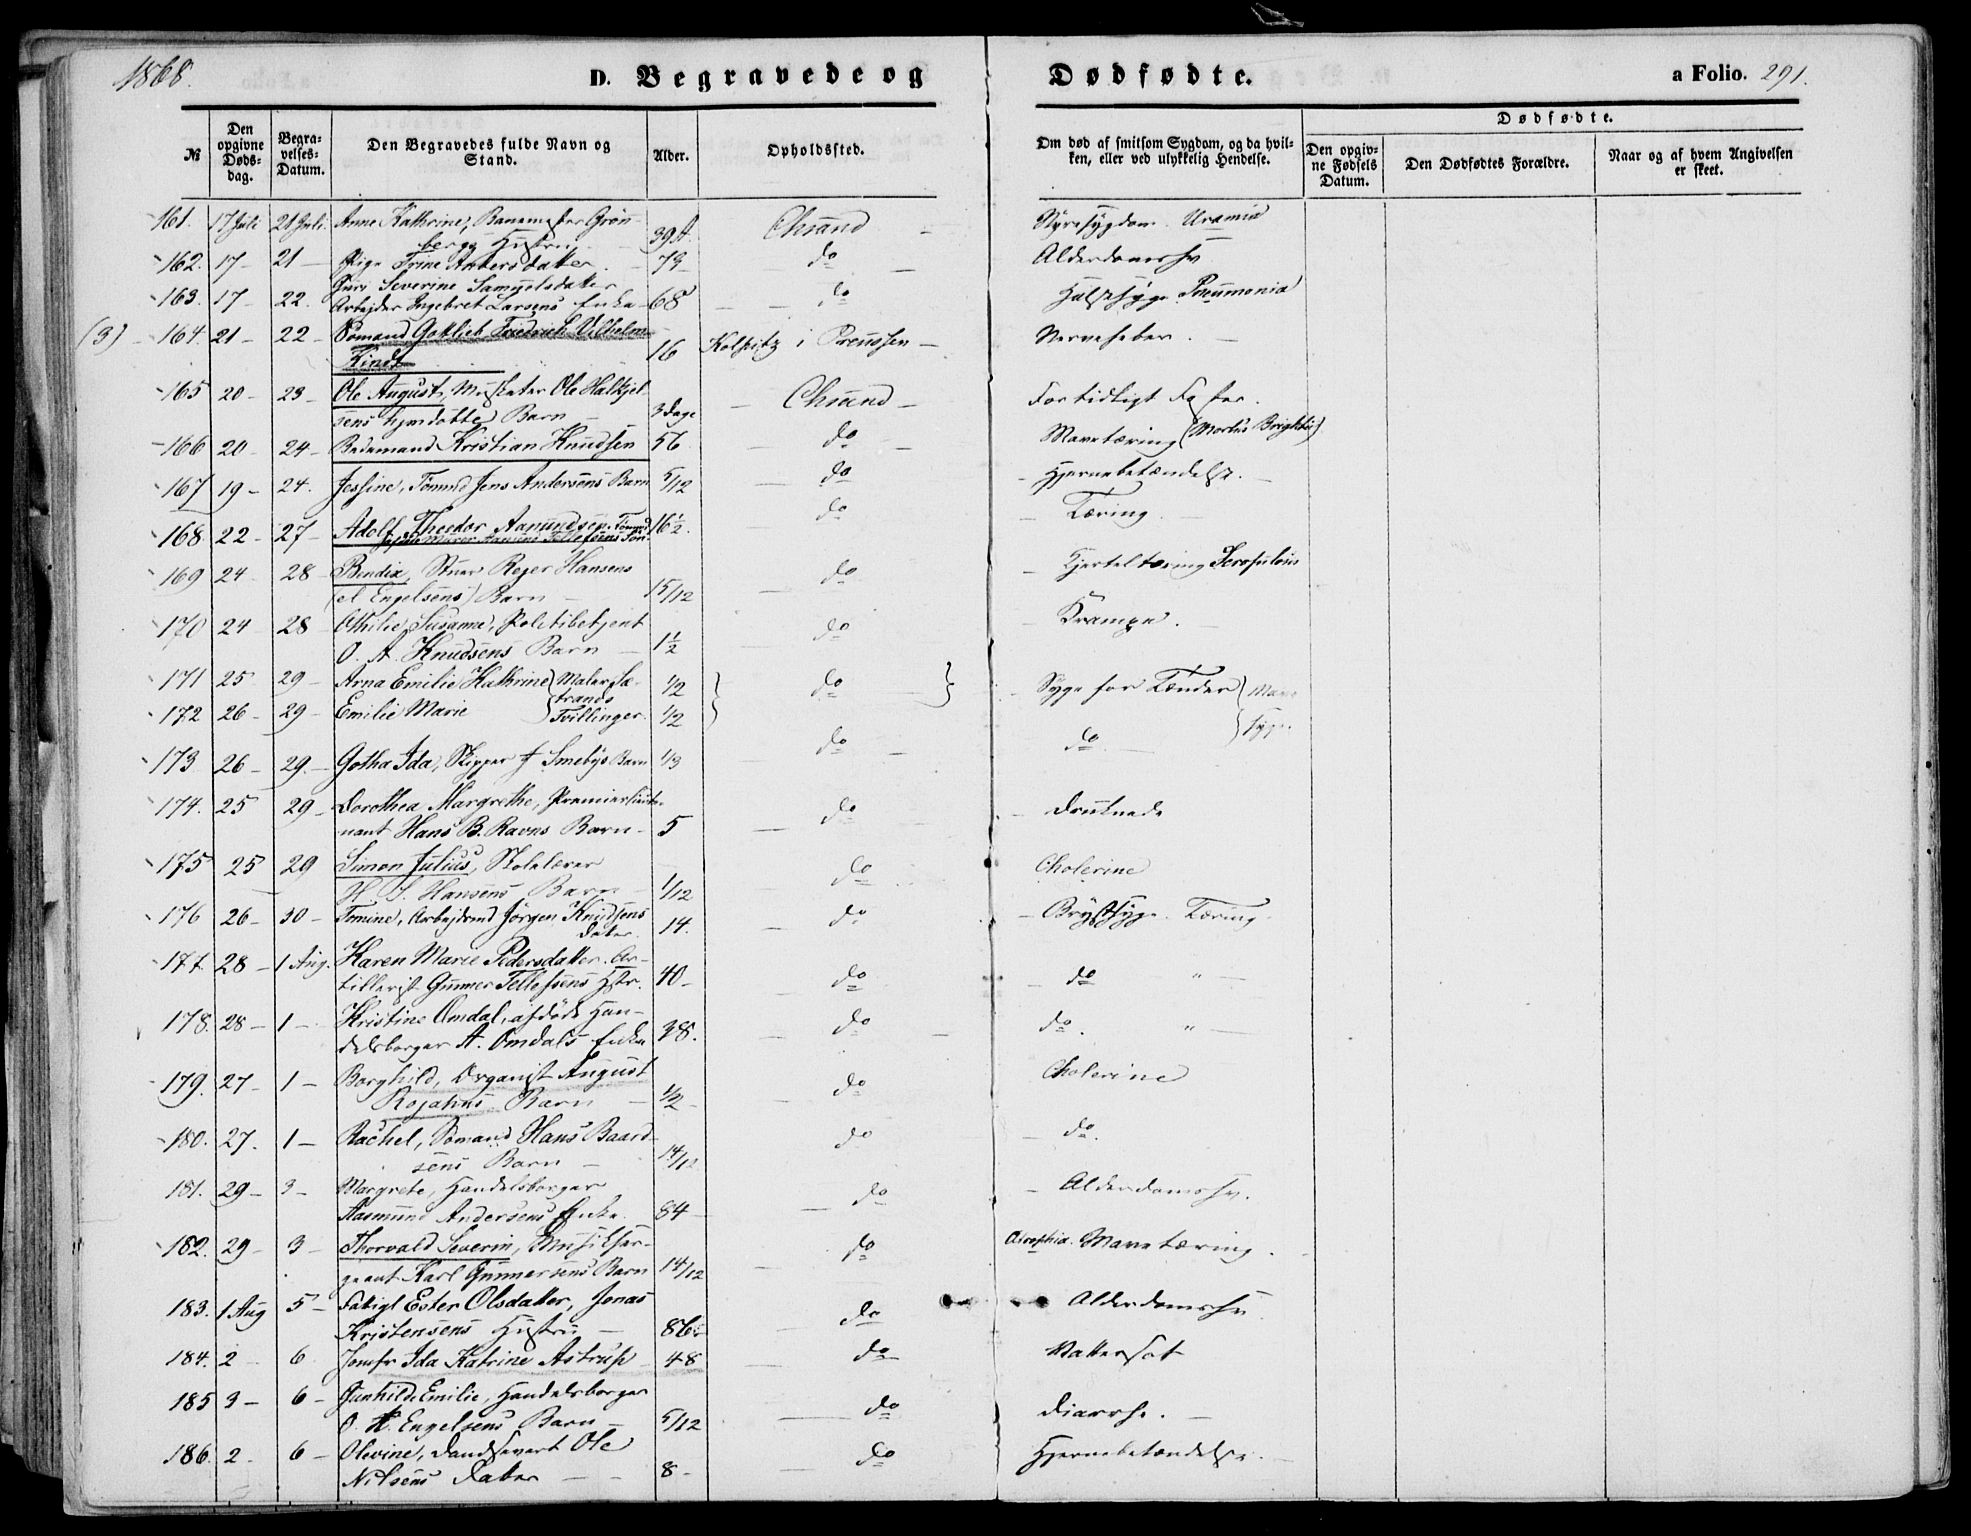 1868.
D. Begravede og Dødfødte.
a Folio. 291.
№
Den opgivne Døds-dag.
Begra-velses-Datum.
Den Begravedes fulde Navn og Stand.
Alder.
Opholdssted.
Om død af smitsom Sygdom, og da hvil-ken, eller ved ulykkelig Hendelse.
Dødfødte.
Den opgiv-ne Fødsels Datum.
Den Dødfødtes Forældre.
Naar og af hvem Angivelsen er skeet.
161. 17 Juli 21 Juli. Anne Kathrine, Banemester Grøn-
bergs Hustru 39 A. Chrsand Nyresygdom. Uræmia
162. 17 - 21 - Pige Trine Andersdatter. 73 do Alderdomssv
163. 17 - 22. Guri Severine Samuelsdatter
Arbejder Ingebret Larsens Enke - 68 do Halssyge Pneumonia
(3) - 164. 21 - 22 - Sømand Gotlieb Friedrich Vilhelm
Kindt 16 Kolpitz i Preussen - Nervefeber.
165 20 - 23 - Ole August, Musketer Ole Halkjel-
sens hjemdøbte Barn 3 Dage Chrsand - For tidligt Født.
166 20 - 24 - Bedemand Kristian Knudsen 56 do Mavetæring (Morbus Brightii)
167 19 - 24. Jessine, Tømmd Jens Andersens Barn 5/12 do Hjernebetændelse.
168. 22 - 27 - Adolf Theodor Aanundsen, Tømmd
Murer Tellefsens Søn 16 1/2. do Tæring
169 24 28 - Bendix, Stuer Rejer Hansens
(el Engelsens) Barn 15/12 do Kjerteltæring Scrofuløs
170 24 - 28 - Othilie Susanne, Politibetjent
O. A. Knudsens Barn 1 1/2 do Krampe.
171 25 29 - Arna Emilie Kathrine } Maler Sæ- 1/2 } do } Syge for Tænder } Mave
172 26 - 29 - Emilie Marie } trands Tvillinger. 1/2 syge.
173 26 - 29. - Gotha Ida, Skipper J Smebys Barn 1/3 do do
174. 25 29 - Dorothea Margrethe, Premierlieute-
nant Hans B. Ravns Barn - 5 do Druknede
175 25 29 Simon Julius, Skolelærer
H. S. Hansens Barn 1/12 do Cholerine
176 26 - 30 - Tomine, Arbejdsmd Jørgen Knudsens
Datter 14. do Brystsyge. Tæring.
177. 28 - 1 Aug. Karen Marie Pedersdatter. Ar-
tillerist Gunner Tellefsens Hstr. 40 - do do "
178. 28 - 1 - Kristine Omdal, afdøde Han-
delsborger A. Omdals Enke 38. do do. "
179. 27 - 1 - Borghild, Organist August
Rojahns Barn 1/2 do Cholerine
180. 27. 1 - Rachel, Sømand Hans Baard-
sens Barn 14/12 do do.
181. 29 - 3 - Margrete, Handelsborger
Aasmund Andersens Enke. 84 do Alderdomssv.
182. 29 - 3 - Thorvald Severin, Musikser-
geant Karl Gunnersens Barn 14/12 do Atrophia. Mavetæring.
183. 1 Aug 5 - Fattigl Ester Olsdatter, Jonas
Kristensens Hustru - 86 do Alderdomssv
184. 2 6 Jomfr Ida Katrine Astrup 48 do Vattersot
185 3 - 6 - Gunhilde Emilie, Handelsborger
O. H. Engelsens Barn 5/12 do Diarrhe.
186. 2 - 6 - Olevine, Ole
Nilsens Datter 8 - do Hjernebetændelse.